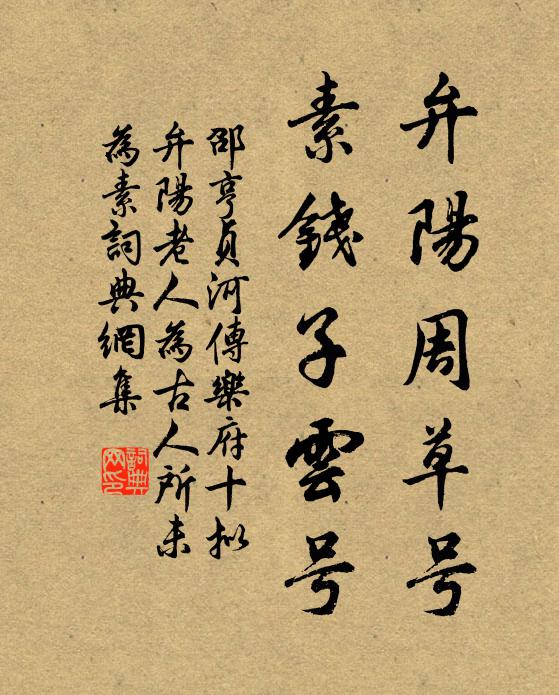 弁陽周草号
素錢子雲号
邵亨貞河傳樂府十拟
弁陽老人為古人所未
為素詞典網集
詞典网印